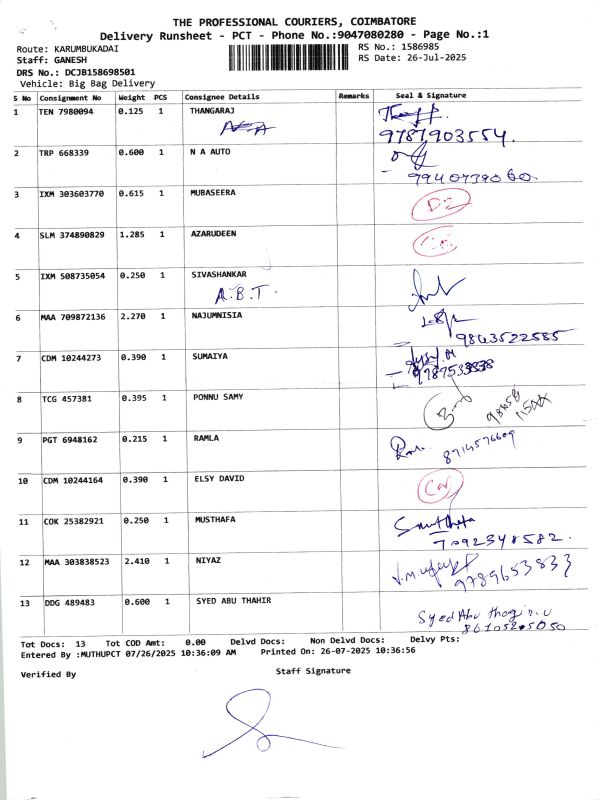 THE PROFESSIONAL COURIERS, COIMBATORE
Delivery Runsheet - PCT - Phone No.:9047080280 - Page No.:1
Route: KARUMBUKADAI
RS No.: 1586985
Staff: GANESH
RS Date: 26-Jul-2025
DRS No.: DCJB158698501
Vehicle: Big Bag Delivery
S No Consignment No Weight PCS Consignee Details Remarks Seal & Signature
1 TEN 7980094 0.125 1 THANGARAJ
9787903554.
2 TRP 668339 0.600 1 N A AUTO
9940739060.
3 IXM 303603770 0.615 1 MUBASEERA
4 SLM 374890829 1.285 1 AZARUDEEN
5 IXM 508735054 0.250 1 SIVASHANKAR
A.B.T.
6 MAA 709872136 2.270 1 NAJUMNISIA
9843522585
7 CDM 10244273 0.390 1 SUMAIYA
8 TCG 457381 0.395 1 PONNU SAMY
9 PGT 6948162 0.215 1 RAMLA
8714576609
10 CDM 10244164 0.390 1 ELSY DAVID
11 COK 25382921 0.250 1 MUSTHAFA
7092348582.
12 MAA 303838523 2.410 1 NIYAZ
9789653833
13 DDG 489483 0.600 1 SYED ABU THAHIR
Syed Abu
Tot Docs: 13 Tot COD Amt: 0.00 Delvd Docs: Non Delvd Docs: Delvy Pts:
Entered By :MUTHUPCT 07/26/2025 10:36:09 AM Printed On: 26-07-2025 10:36:56
Verified By
Staff Signature